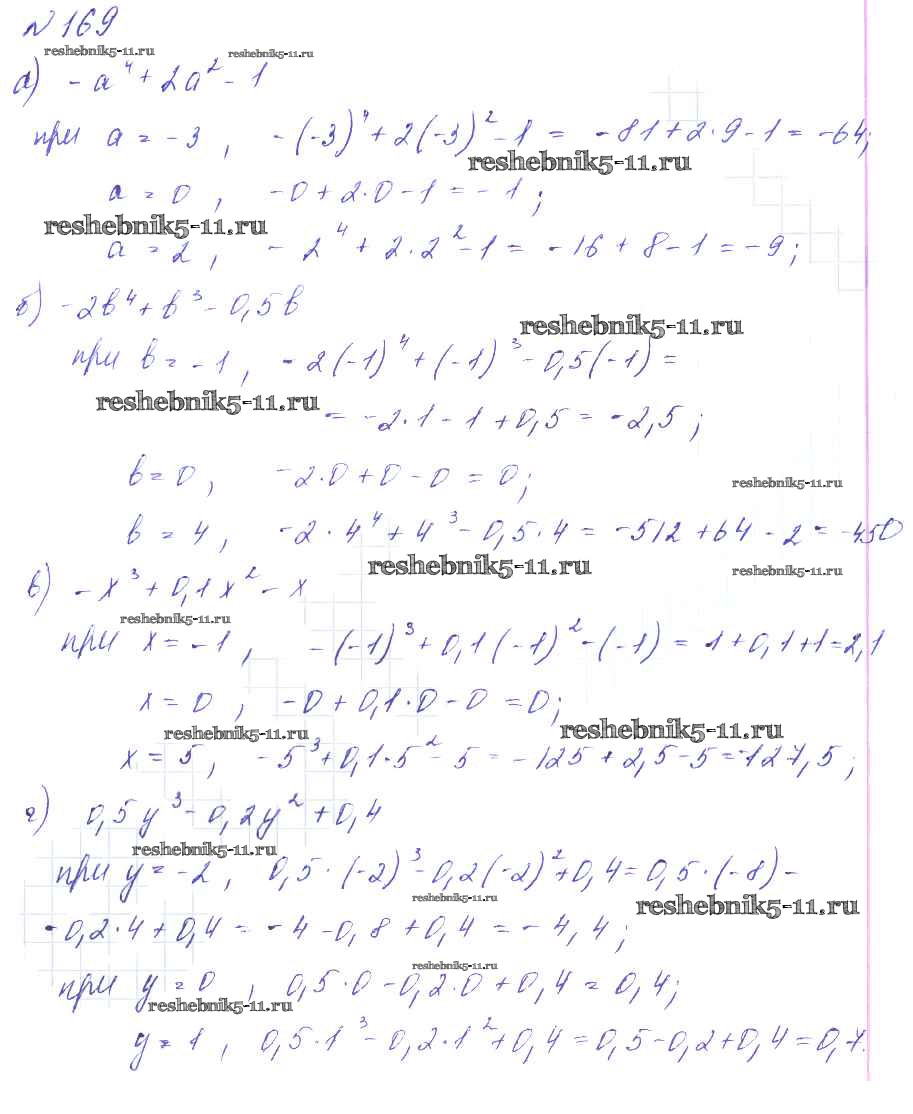 №169
reshebnik5-11.ru reshebnik5-11.ru
а) -a⁴ + 2a² - 1
при a = -3, -(-3)⁴ + 2(-3)² - 1 = -81 + 2·9 - 1 = -64;
reshebnik5-11.ru
a = 0, -0 + 2·0 - 1 = -1;
reshebnik5-11.ru
a = 2, -2⁴ + 2·2² - 1 = -16 + 8 - 1 = -9;
б) -2b⁴ + b³ - 0,5b
reshebnik5-11.ru
при b = -1, -2(-1)⁴ + (-1)³ - 0,5(-1) =
reshebnik5-11.ru
= -2·1 - 1 + 0,5 = -2,5;
b = 0, -2·0 + 0 - 0 = 0;
reshebnik5-11.ru
b = 4, -2·4⁴ + 4³ - 0,5·4 = -512 + 64 - 2 = -450
reshebnik5-11.ru reshebnik5-11.ru
в) -x³ + 0,1x² - x
reshebnik5-11.ru
при x = -1, -(-1)³ + 0,1(-1)² - (-1) = 1 + 0,1 + 1 = 2,1
x = 0, -0 + 0,1·0 - 0 = 0;
reshebnik5-11.ru reshebnik5-11.ru
x = 5, -5³ + 0,1·5² - 5 = -125 + 2,5 - 5 = -127,5;
г) 0,5y³ - 0,2y² + 0,4
reshebnik5-11.ru
при y = -2, 0,5·(-2)³ - 0,2(-2)² + 0,4 = 0,5·(-8) -
reshebnik5-11.ru reshebnik5-11.ru
- 0,2·4 + 0,4 = -4 - 0,8 + 0,4 = -4,4;
reshebnik5-11.ru
при y = 0, 0,5·0 - 0,2·0 + 0,4 = 0,4;
reshebnik5-11.ru
y = 1, 0,5·1³ - 0,2·1² + 0,4 = 0,5 - 0,2 + 0,4 = 0,7.